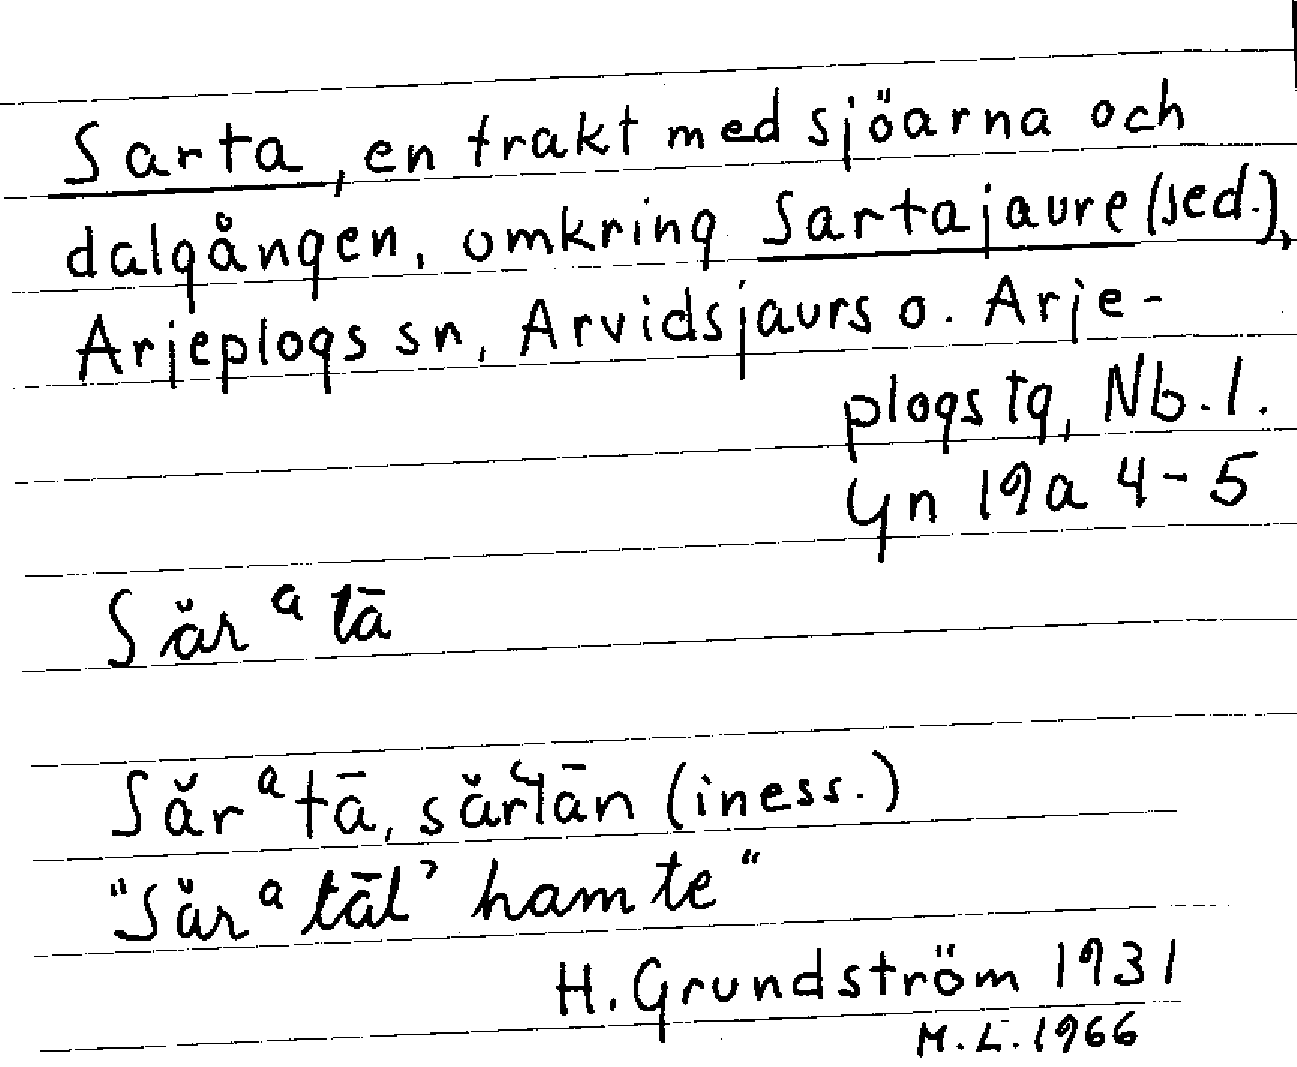 Sarta, en trakt med sjöarna och
dalgången, omkring Sartajaure (sed.),
Arjeplogs sn, Arvidsjaurs o. Arje-
plogs tg, Nb. l.
Gn 19a 4-5
Sǎr ᵃ tā
Sǎr ᵃ tā, sǎrʿtān (iness.)
"Sǎr ᵃ tāl' hamte"
H. Grundström 1931
M.L. 1966